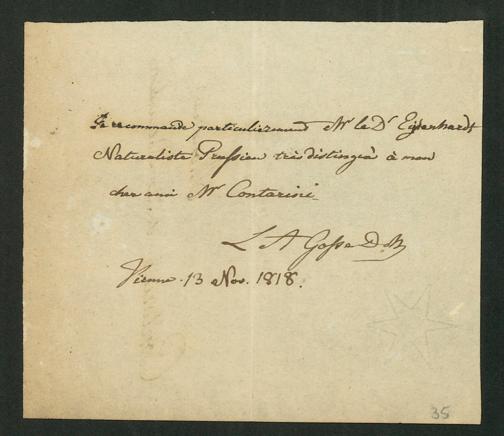 Je recommande particulierement Mr le Dr Eysenhardt
Naturaliste Prussien très distingué à mon
cher ami Mr Contarini
L A Gosse D. M
Vienne. 13 Nov. 1818.
35